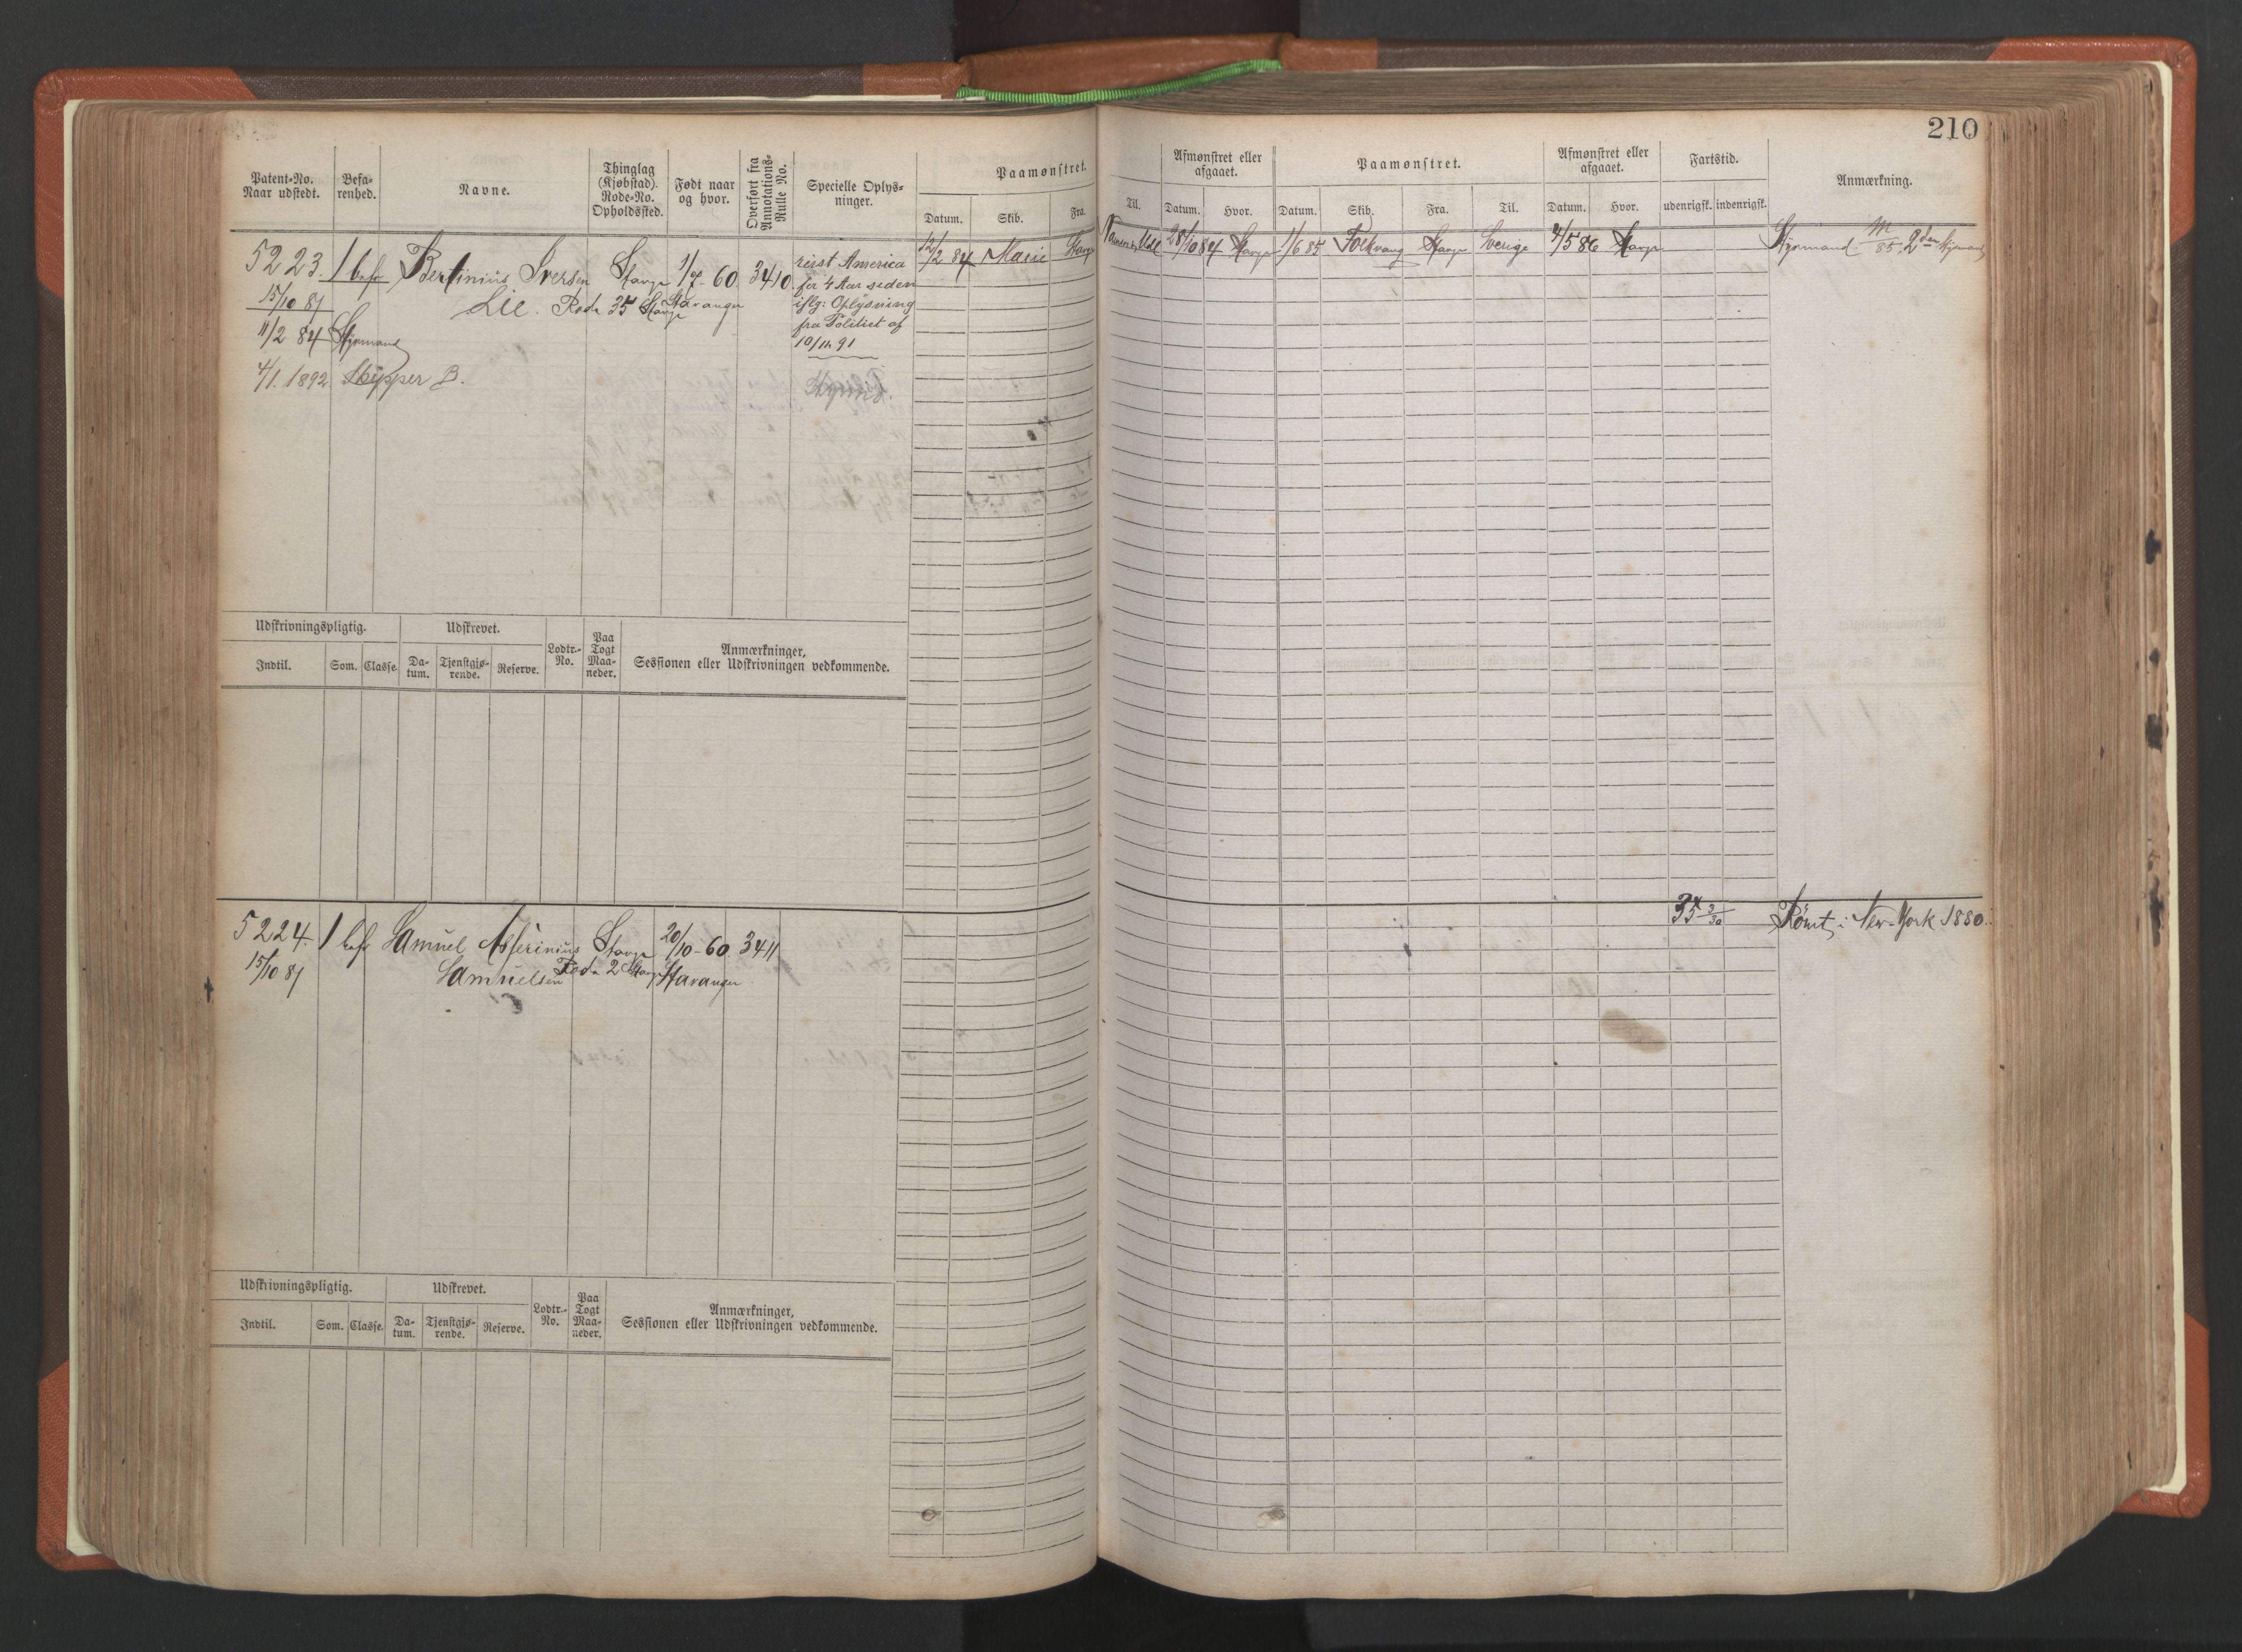 210
Patent-No. Naar udstedt.
Befarenhed.
Navne.
Thinglag (Kjøbstad). Rode-No. Opholdssted.
Født naar og hvor.
Overført fra Annotations-Rulle No.
Specielle Oplysninger.
Paamønstret.
Datum. Skib. Fra. Til.
Afmønstret eller afgaaet.
Datum. Hvor.
Paamønstret.
Datum. Skib. Fra. Til.
Afmønstret eller afgaaet.
Datum. Hvor.
Fartstid.
udenrigsk. indenrigsk.
Anmærkning.
5223. 1 bef Bertinius Iversen Stavgr 1/7-60. 3410. reist America
15/10 81 Lie. Rode 35 Stavgr Stavanger for 4 Aar siden
iflg: Oplysning
11/2 84 Styrmand fra Politiet af
10/11 91
4/1. 1892 Skipper B.
12/2 84 Marie Stavgr 28/10 84 Stavgr 1/6 85 Folkvang Stavgr Sverige 4/5 86 Stavgr Styrmand M/85. 2den Styrmand
Udskrivningspligtig. Udskrevet. Lodtr.-No. Paa Togt Maaneder. Anmærkninger, Sessionen eller Udskrivningen vedkommende.
Indtil. Som. Classe. Datum. Tjenstgjørende. Reserve.
5224. 1 bef Samuel Asserinius Stavgr 20/10-60. 3411
15/10 81 Samuelsen Rode 2 Stavgr Stavanger
3/30 Rømt i New-York 1880.
Udskrivningspligtig. Udskrevet. Lodtr.-No. Paa Togt Maaneder. Anmærkninger, Sessionen eller Udskrivningen vedkommende.
Indtil. Som. Classe. Datum. Tjenstgjørende. Reserve.